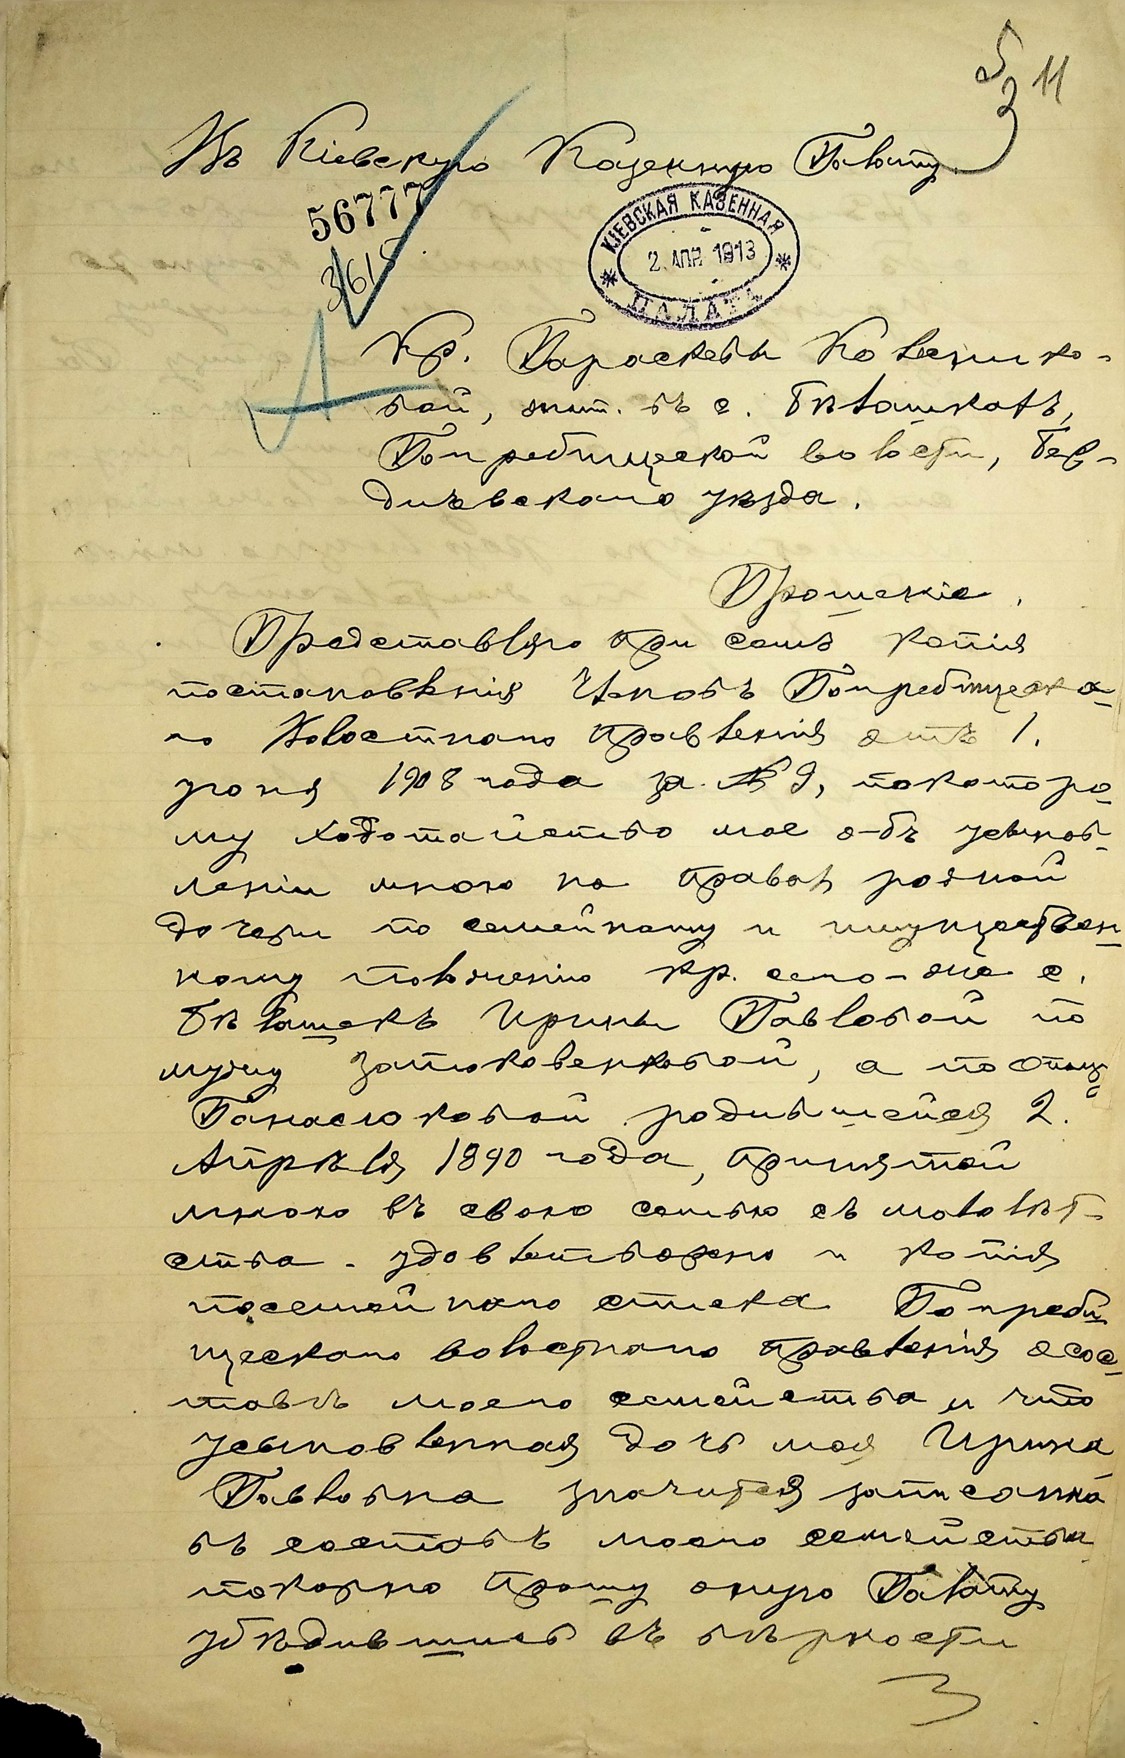 11
Въ Кіевскую Казенную Палату.
56777
КІЕВСКАЯ КАЗЕННАЯ
2 АПР 1913
ПАЛАТА
Кр. Параскевы Колеснико-
вой, жит. въ с. Бѣлашкахъ,
Погребищеской волости, Бер-
дичевскаго уѣзда.
Прошеніе.
Представляю при семъ копія
постановленія Членовъ Погребищеска-
го Волостного Правленія отъ 1.
1908 года за № 9, покоторо-
му ходотайство мое объ усынов-
леніи мною на правах родной
дочери по семейному и имуществен-
ному положенію кр. сего-же с.
Бѣлашекъ Ирины Павловой по
мужу а по отцу
Панасюковой родившейся 2.
Апрѣля 1890 года, принятой
мною въ свою семью съ малолѣт-
ства - удовлетворено и копія
посемейнаго списка Погреби-
щескаго волостного правленія осос-
тавѣ моего семейства и что
усыновленная дочь моя Ирина
Павловна значится записанна
въ составѣ моего семейства
покорно прошу оную Палату
убѣдившись въ вѣрности